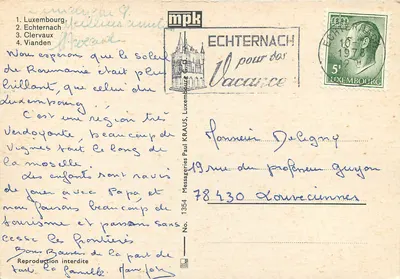 1. Luxembourg
2. Echternach
3. Clervaux
4. Vianden
mpk
ECHTERNACH
pour des
Vacances
ECHTERNACH
5F
LUXEMBOURG
Nous esperons que le soleil
de Roumanie était plus
brillant, que celui du
Luxembourg!
C'est une region très
Verdoyante, beaucoup de
Vignes tout le long de
la moselle.
Les enfants sont ravis
de jouer avec Papa et
nous faisons beaucoup de
tourisme et passons sans
cesse les frontières
Bons Baisers de la part de
tout la famille.
Reproduction interdite
No. 1354 Messageries Paul KRAUS, Luxembourg
Monsieur Deligny
19 rue du professeur Guyon
78430 Louveciennes